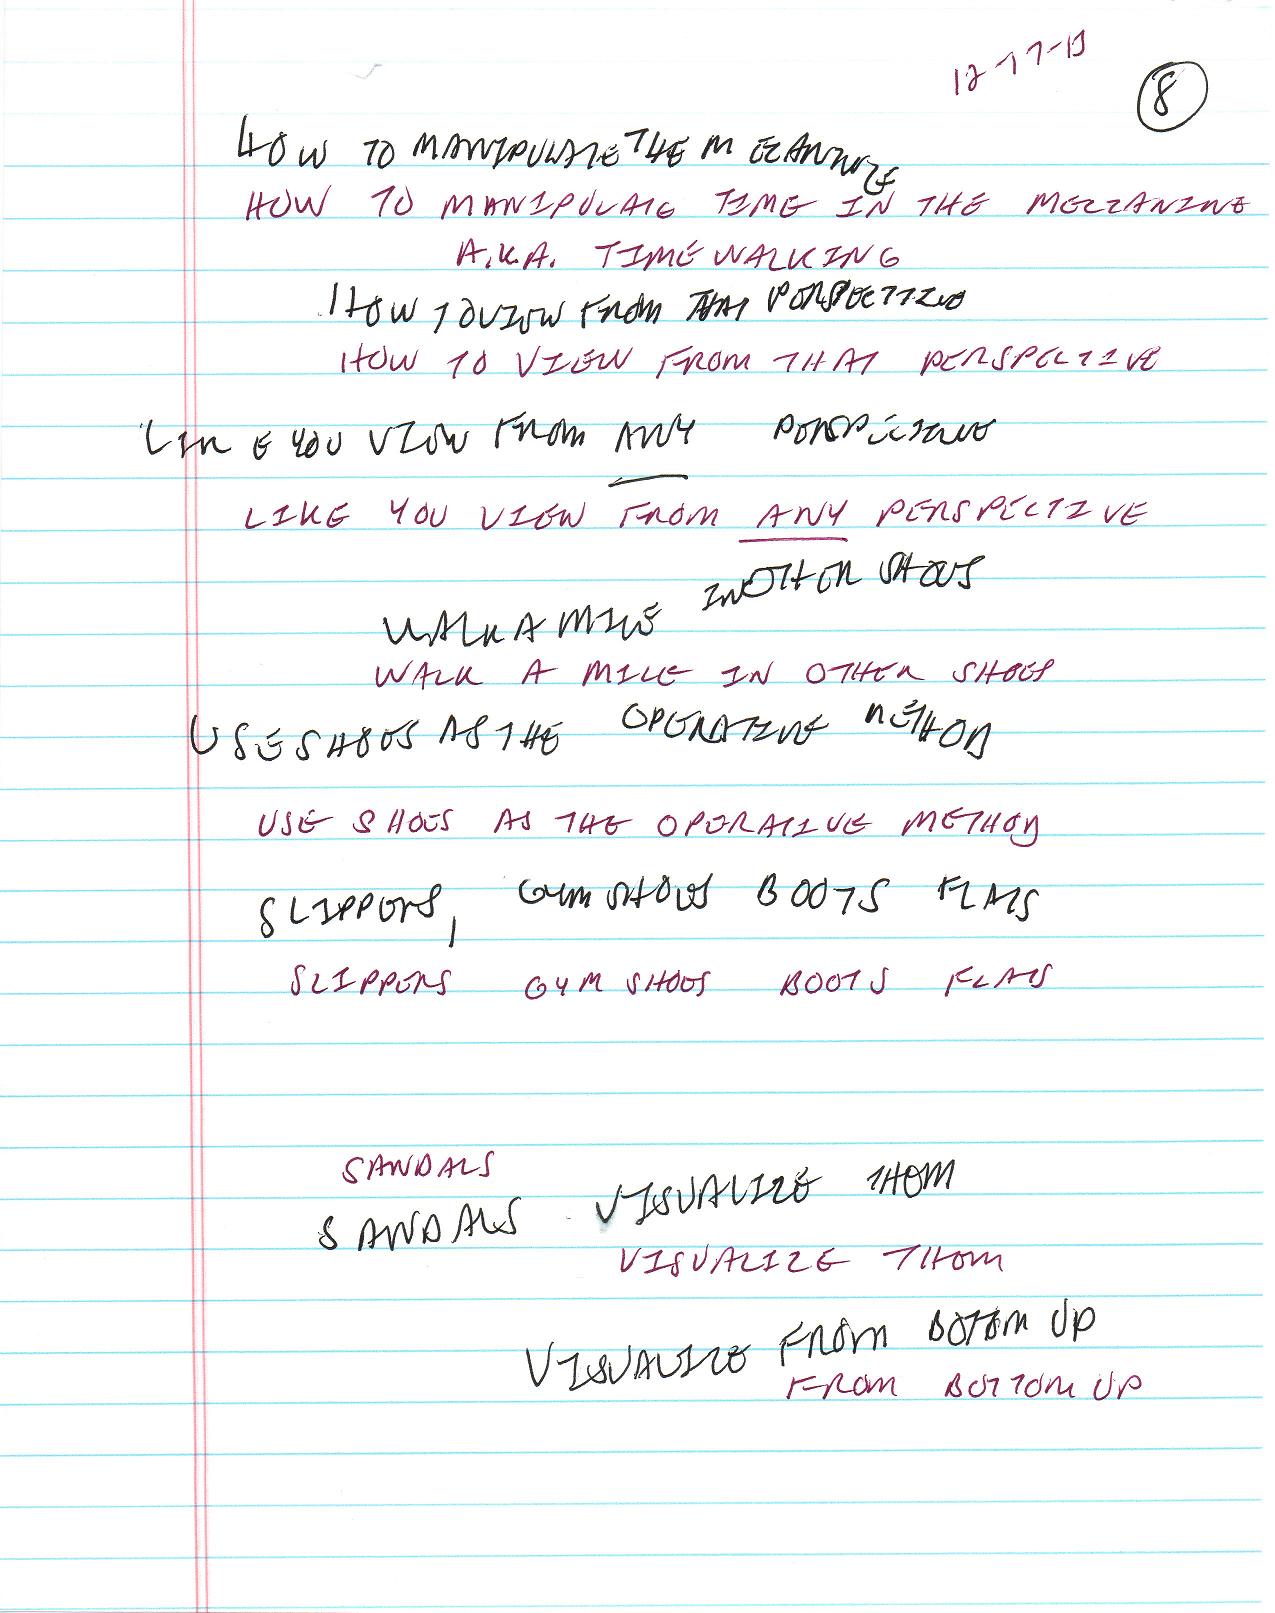 12-17-13
8
HOW TO MANIPULATE THE MEZANNINE
HOW TO MANIPULATE TIME IN THE MEZZANINE
A.K.A. TIME WALKING
HOW TO VIEW FROM THAT PERSPECTIVE
HOW TO VIEW FROM THAT PERSPECTIVE
LIKE YOU VIEW FROM ANY PERSPECTIVE
LIKE YOU VIEW FROM ANY PERSPECTIVE
WALK A MILE IN OTHER SHOES
WALK A MILE IN OTHER SHOES
USE SHOES AS THE OPERATIVE METHOD
USE SHOES AS THE OPERATIVE METHOD
SLIPPERS, GYM SHOES BOOTS FLATS
SLIPPERS GYM SHOES BOOTS FLATS
SANDALS
SANDALS VISUALIZE THEM
VISUALIZE THEM
VISUALIZE FROM BOTOM UP
FROM BOTTOM UP